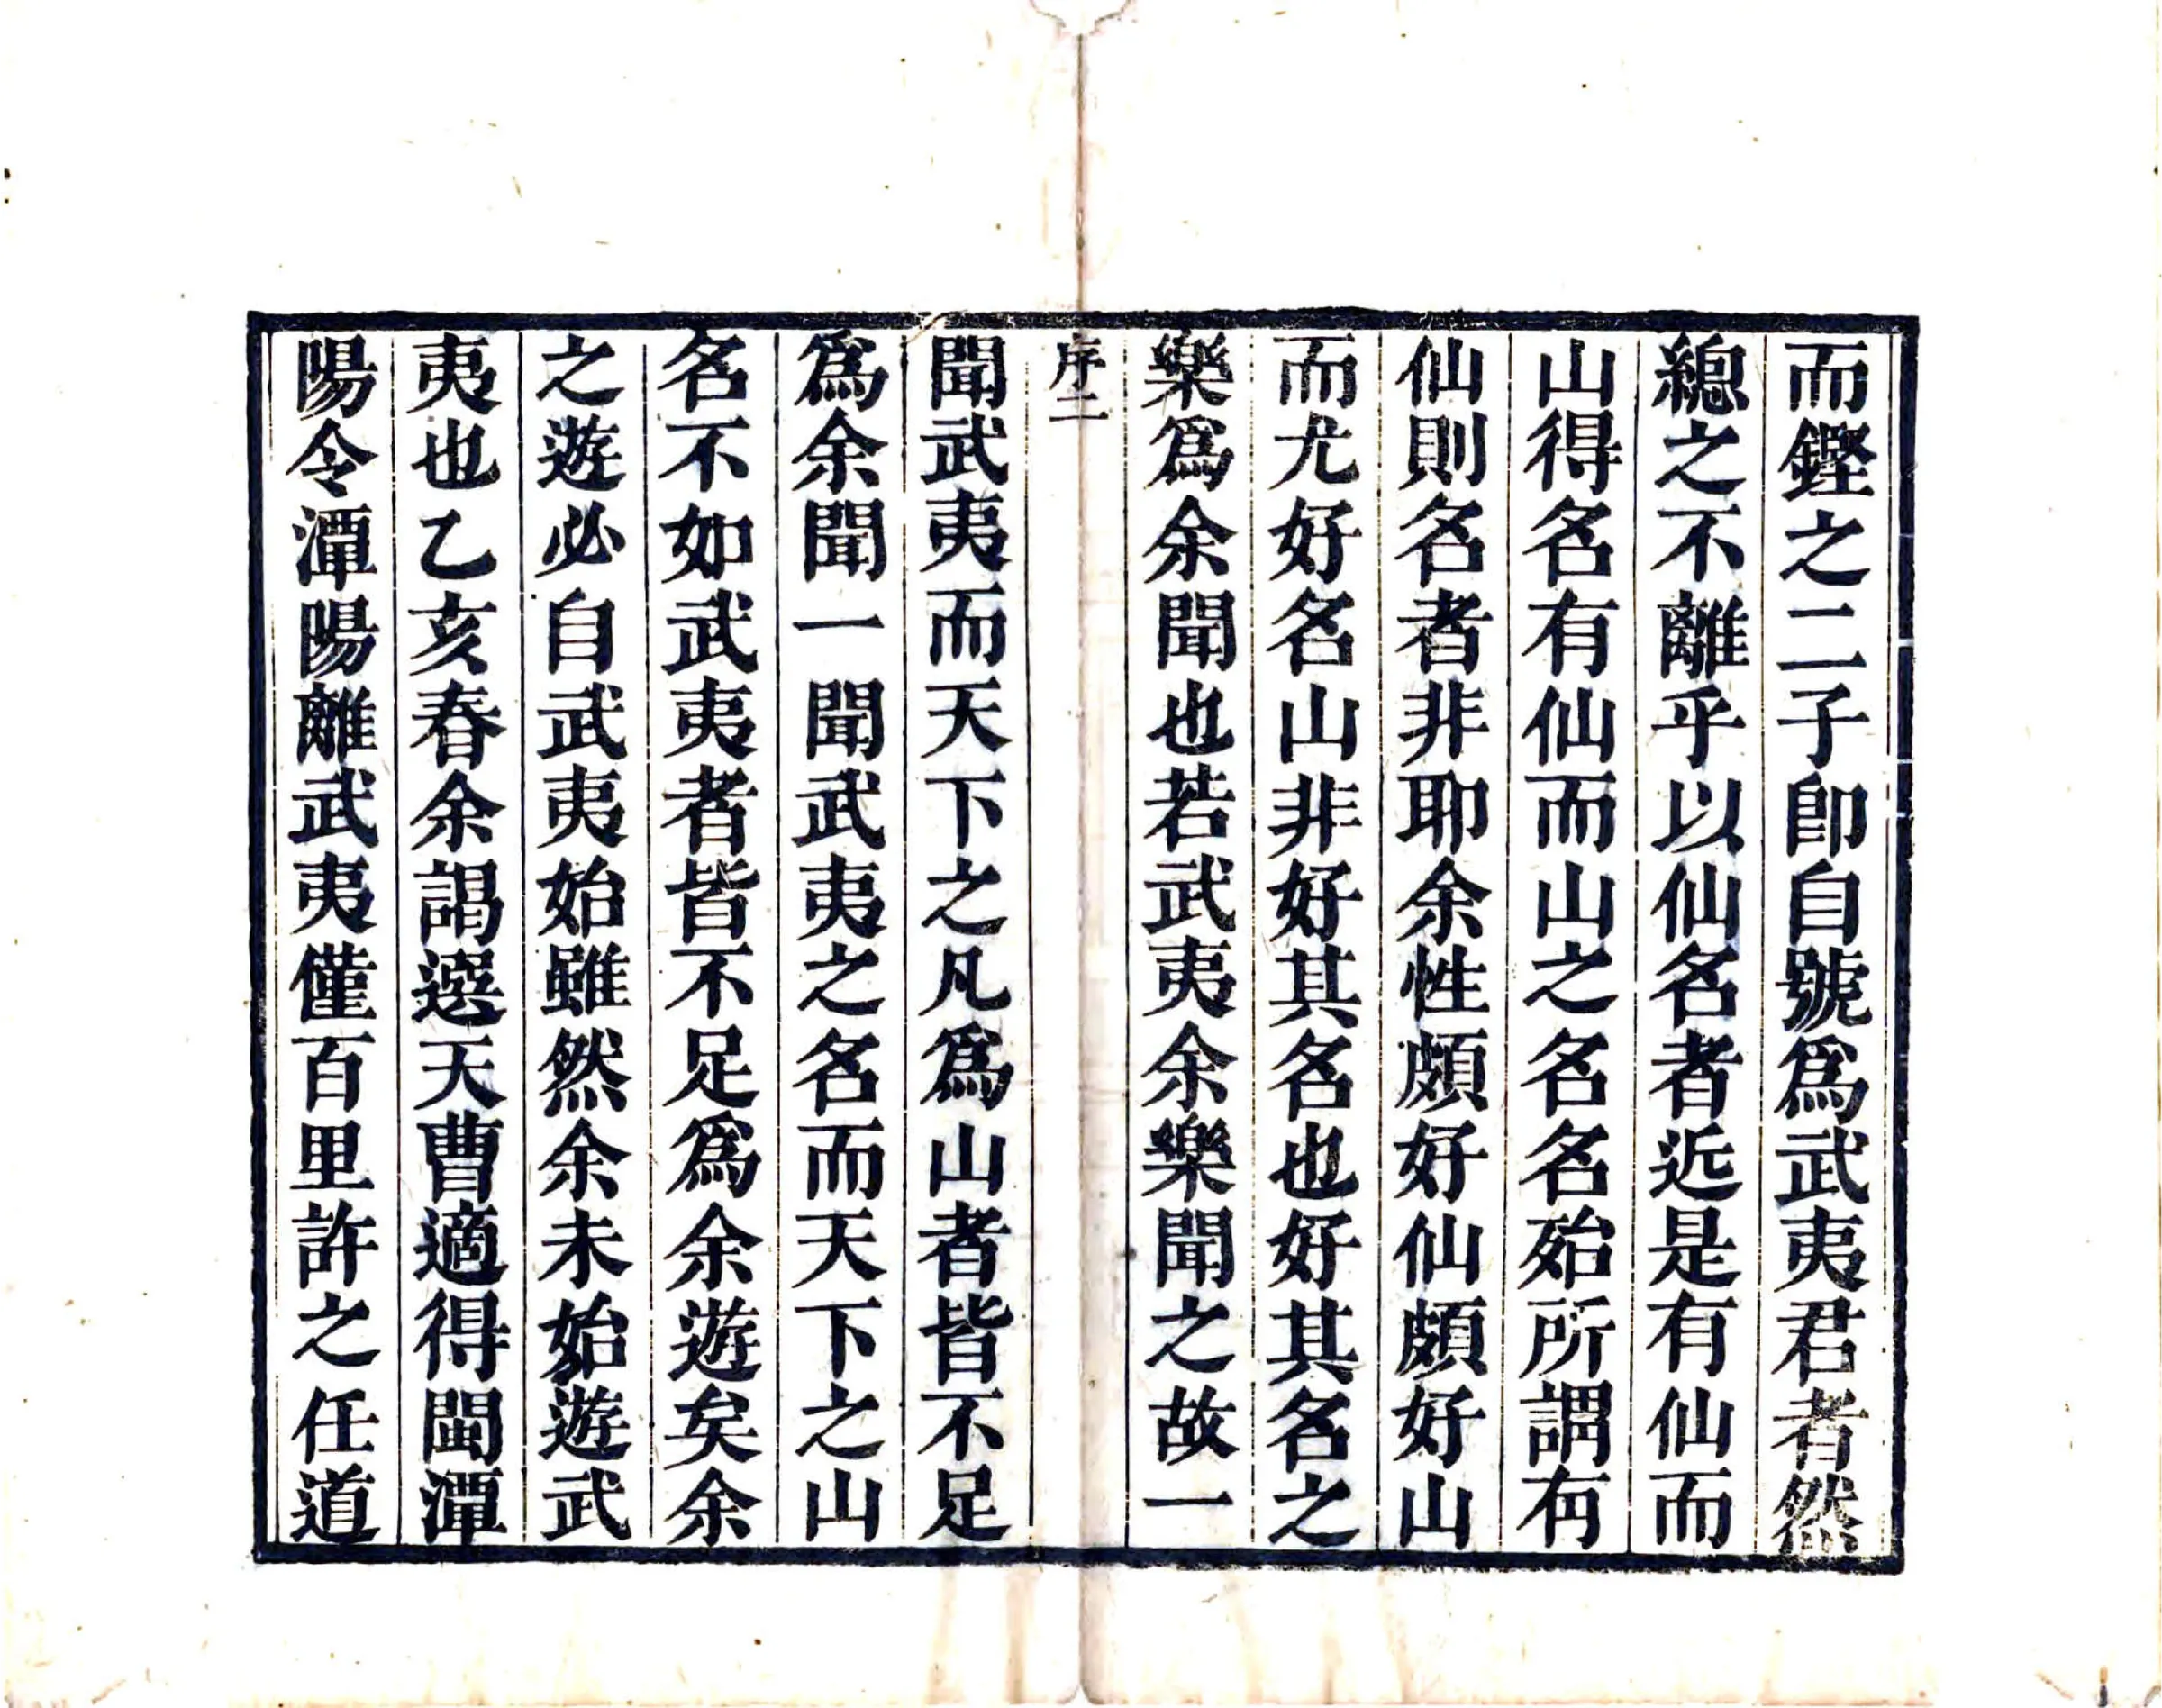 而鏗之二子卽自號爲武夷君者然
緫之不離乎以仙名者近是有仙而
山得名有仙而山之名名殆所謂有
仙則名者非耶余性頗好仙頗好山
而尤好名山非好其名也好其名之
樂爲余聞也若武夷余樂聞之故一
序二
聞武夷而天下之凡爲山者皆不足
爲余聞一聞武夷之名而天下之山
名不如武夷者皆不足爲余遊矣余
之遊必自武夷始雖然余未始遊武
夷也乙亥春余謁選天曹適得閩潭
陽令潭陽離武夷僅百里許之任道